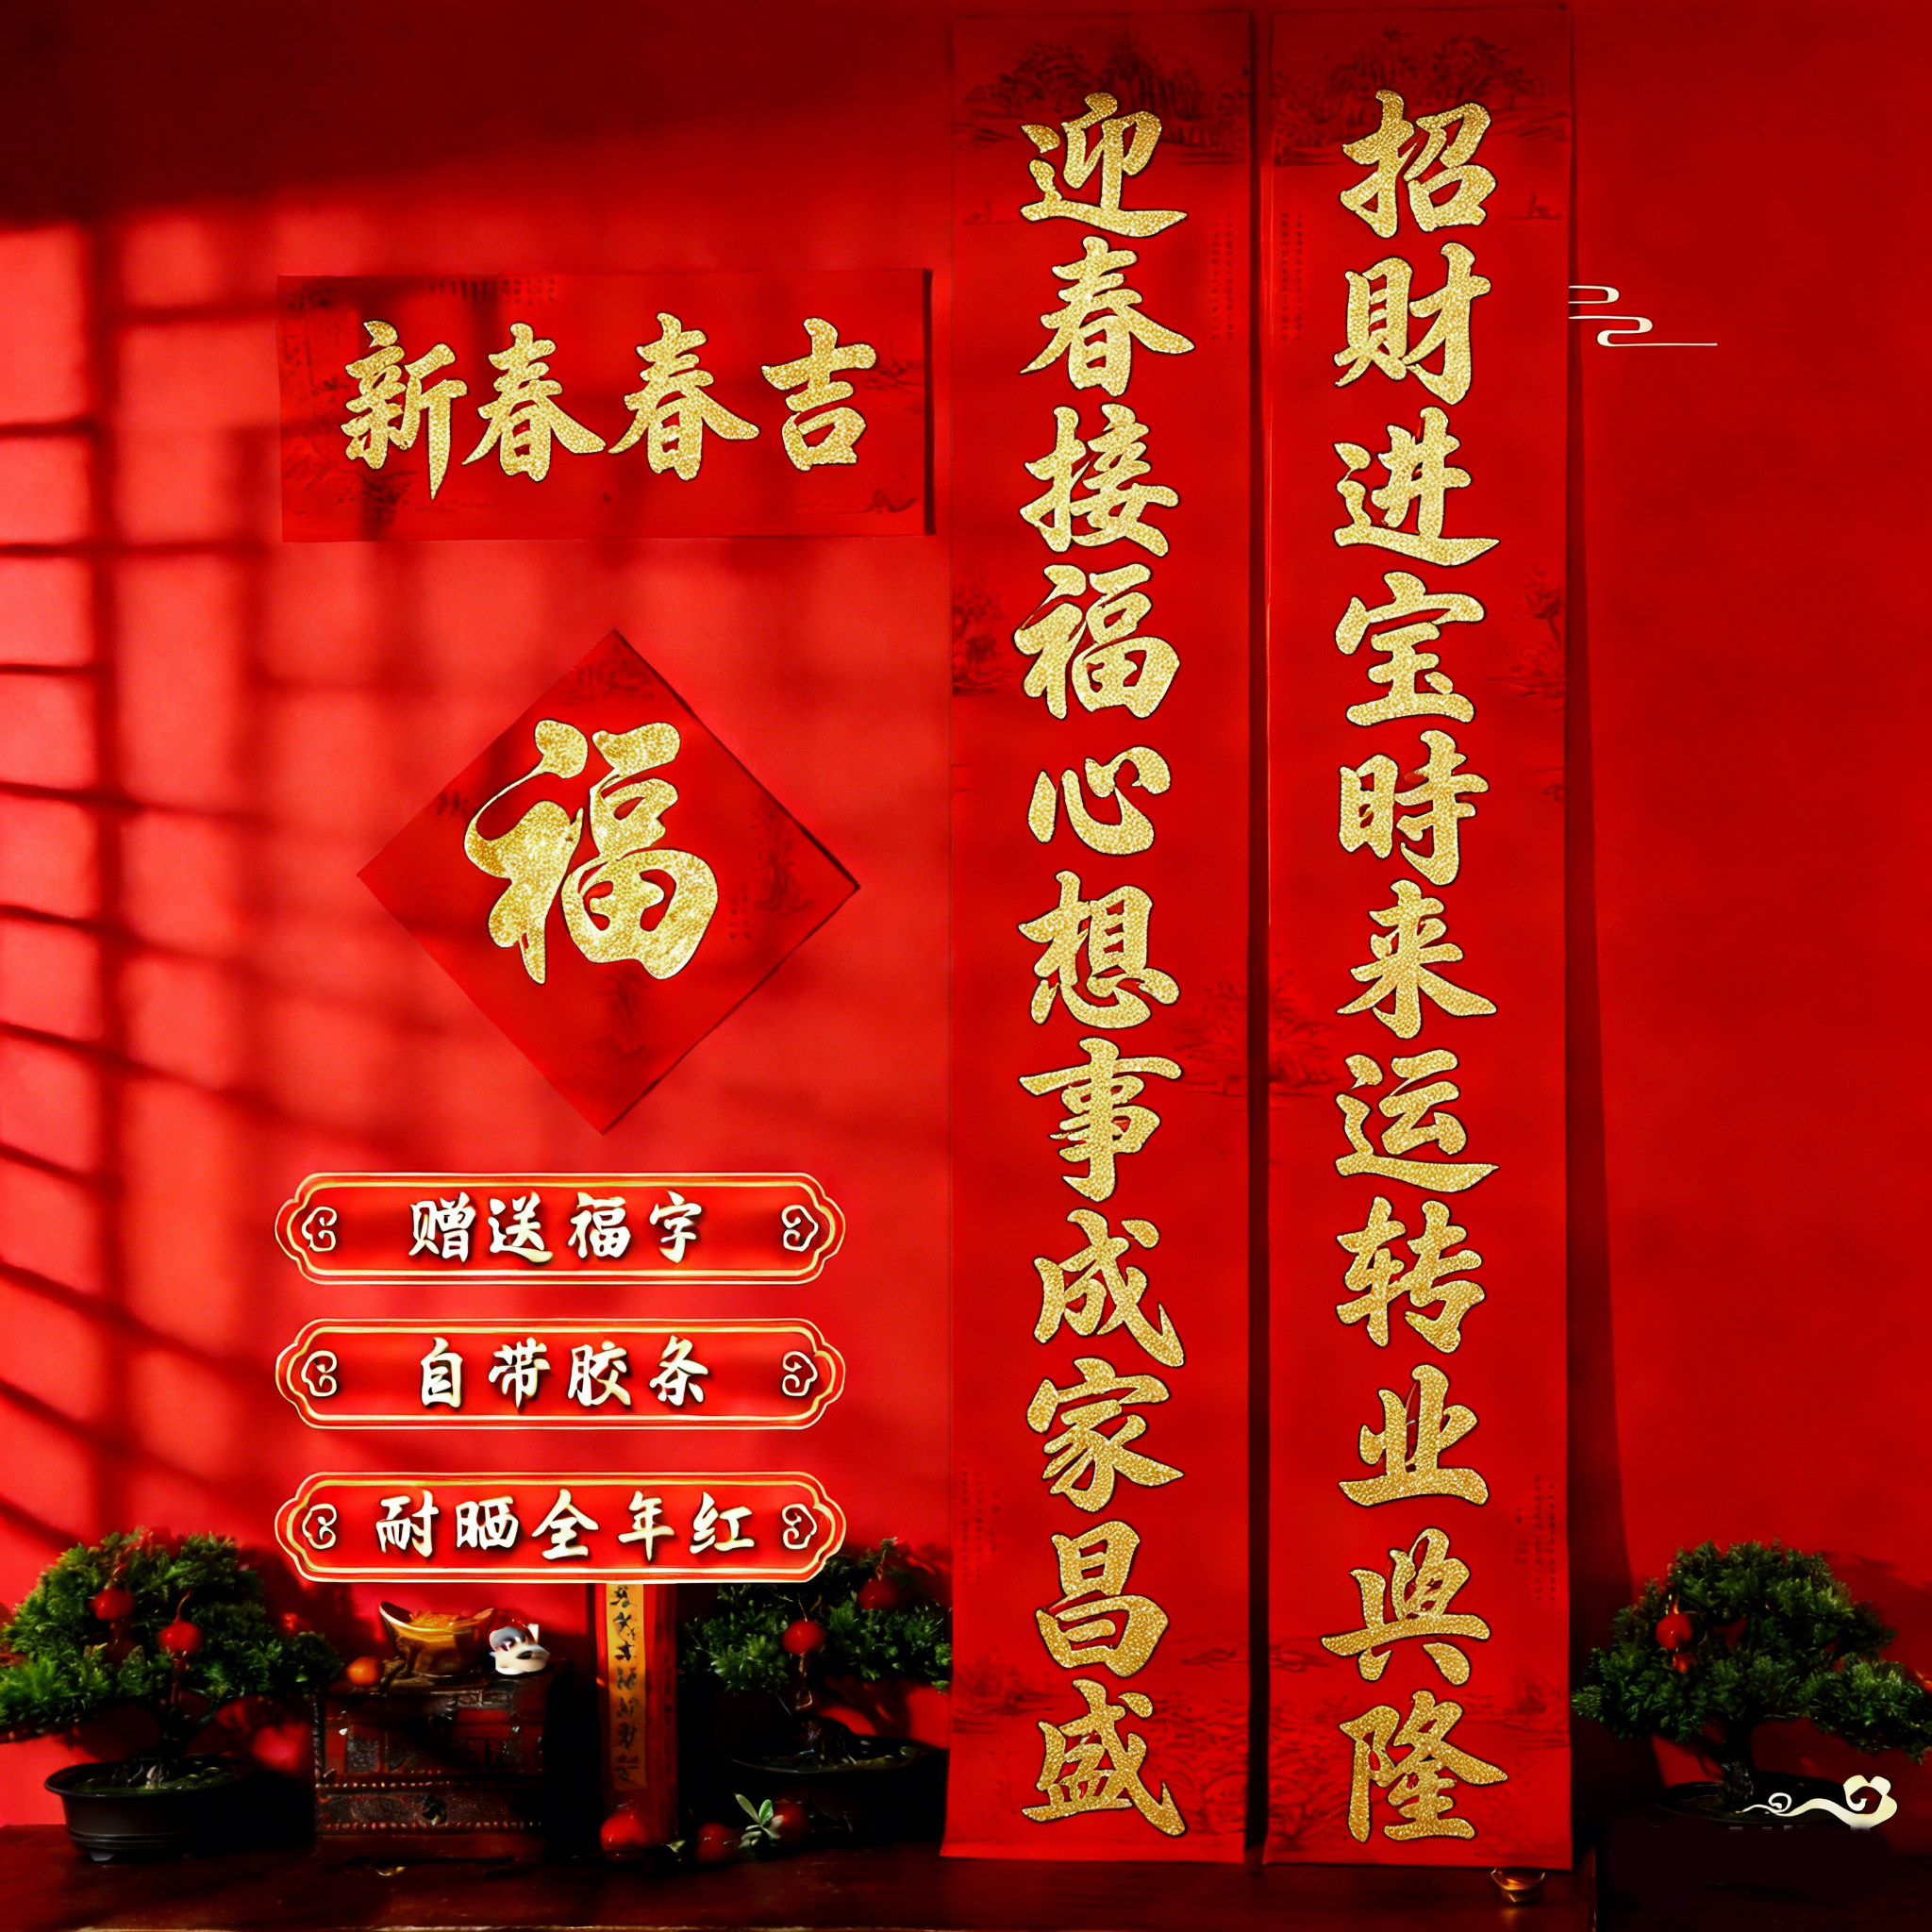 新春春吉
招財进宝時来运转业典隆
迎春接福心想事成家昌盛
福
赠送福字
自带胶条
耐晒全年红